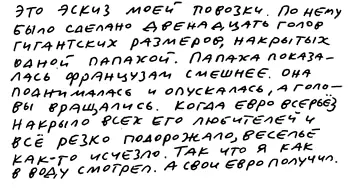 ЭТО ЭСКИЗ МОЕЙ ПОВОЗКИ. ПО НЕМУ
БЫЛО СДЕЛАНО ДВЕНАДЦАТЬ ГОЛОВ
ГИГАНТСКИХ РАЗМЕРОВ, НАКРЫТЫХ
ОДНОЙ ПАПАХОЙ. ПАПАХА ПОКАЗА-
ЛАСЬ ФРАНЦУЗАМ СМЕШНЕЕ. ОНА
ПОДНИМАЛАСЬ И ОПУСКАЛАСЬ, А ГОЛО-
ВЫ ВРАЩАЛИСЬ. КОГДА ЕВРО ВСЕРЬЁЗ
НАКРЫЛО ВСЕХ ЕГО ЛЮБИТЕЛЕЙ И
ВСЁ РЕЗКО ПОДОРОЖАЛО, ВЕСЕЛЬЕ
КАК-ТО ИСЧЕЗЛО. ТАК ЧТО Я КАК
В ВОДУ СМОТРЕЛ. А СВОИ ЕВРО ПОЛУЧИЛ.